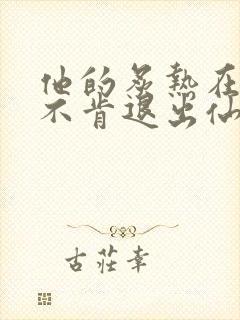 他的炙热在
不肯退出仙
古莊幸